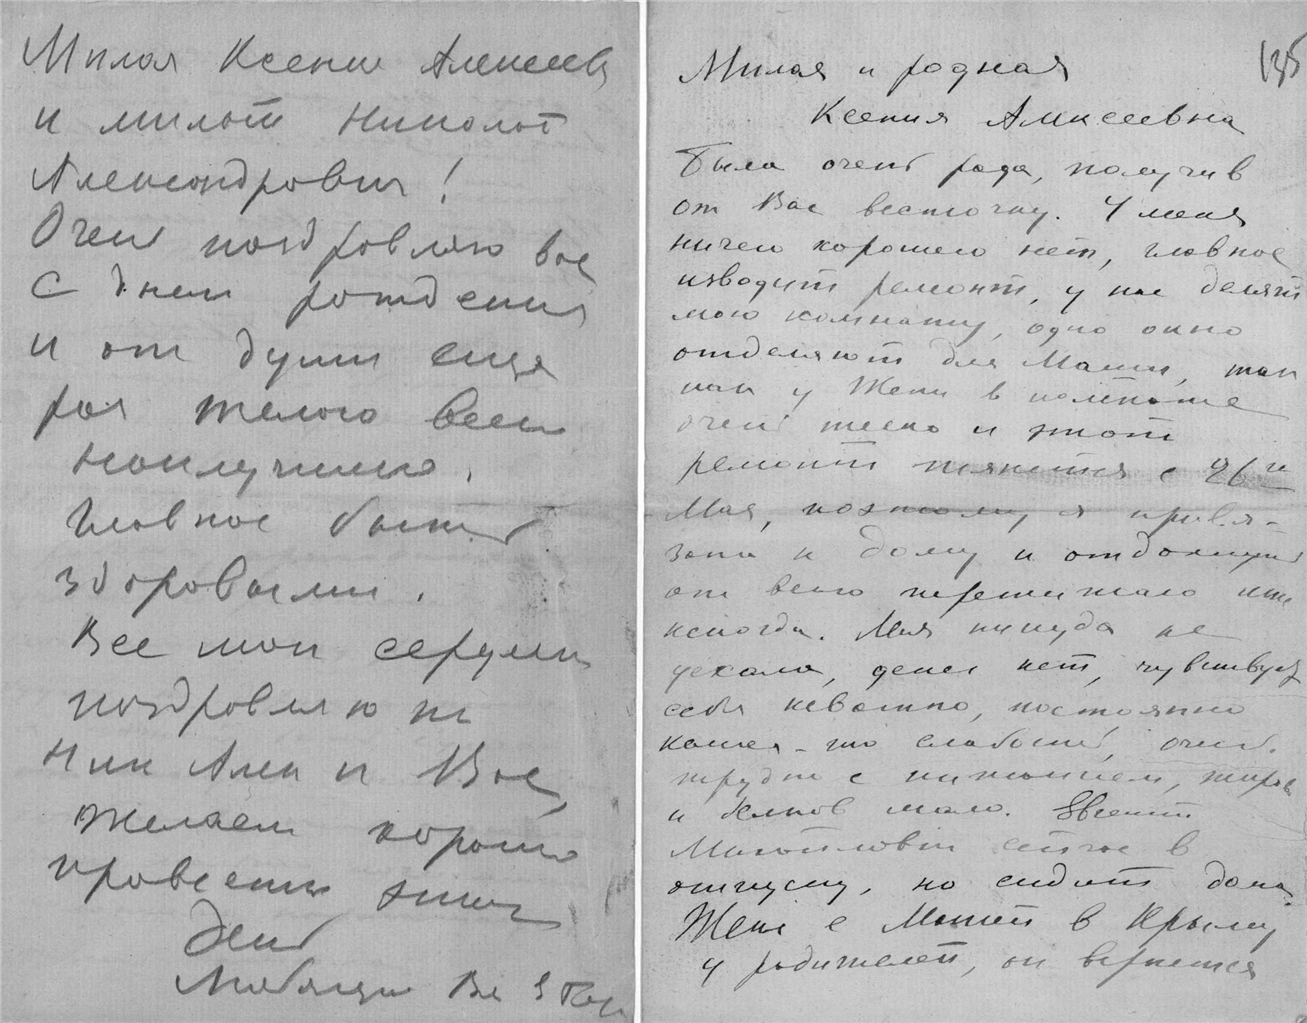 Милая Ксения Алексеевна
и милый Николай
Александрович!
Очень поздравляю вас
с днем рождения
и от души еще
раз желаю всего
наилучшего.
Главное быть
здоровыми.
Все мои сердечно
поздравляют
Ник Алек и Вас,
желаем хорошо
провести этот
день
Любящая Вас
135
Милая и родная
Ксения Алексеевна
Была очень рада, получив
от Вас весточку. У меня
ничего хорошего нет, главное
изводит ремонт, у нас делят
мою комнату, одно окно
отделяют для Маши, так
как у Жени в комнате
очень тесно и этот
ремонт тянется с 26го
Мая, поэтому я привя-
зана к дому и отдохнуть
от всего пережитого мне
некогда. Мая никуда не
уехала, денег нет, чувствует
себя неважно, постоянно
какая-то слабость, очень
трудно с питанием, жиров
и белков мало. Евгений
Михайлович сейчас в
отпуску, но сидит дома.
Женя с Машей в Крыму
у родителей, он вернется